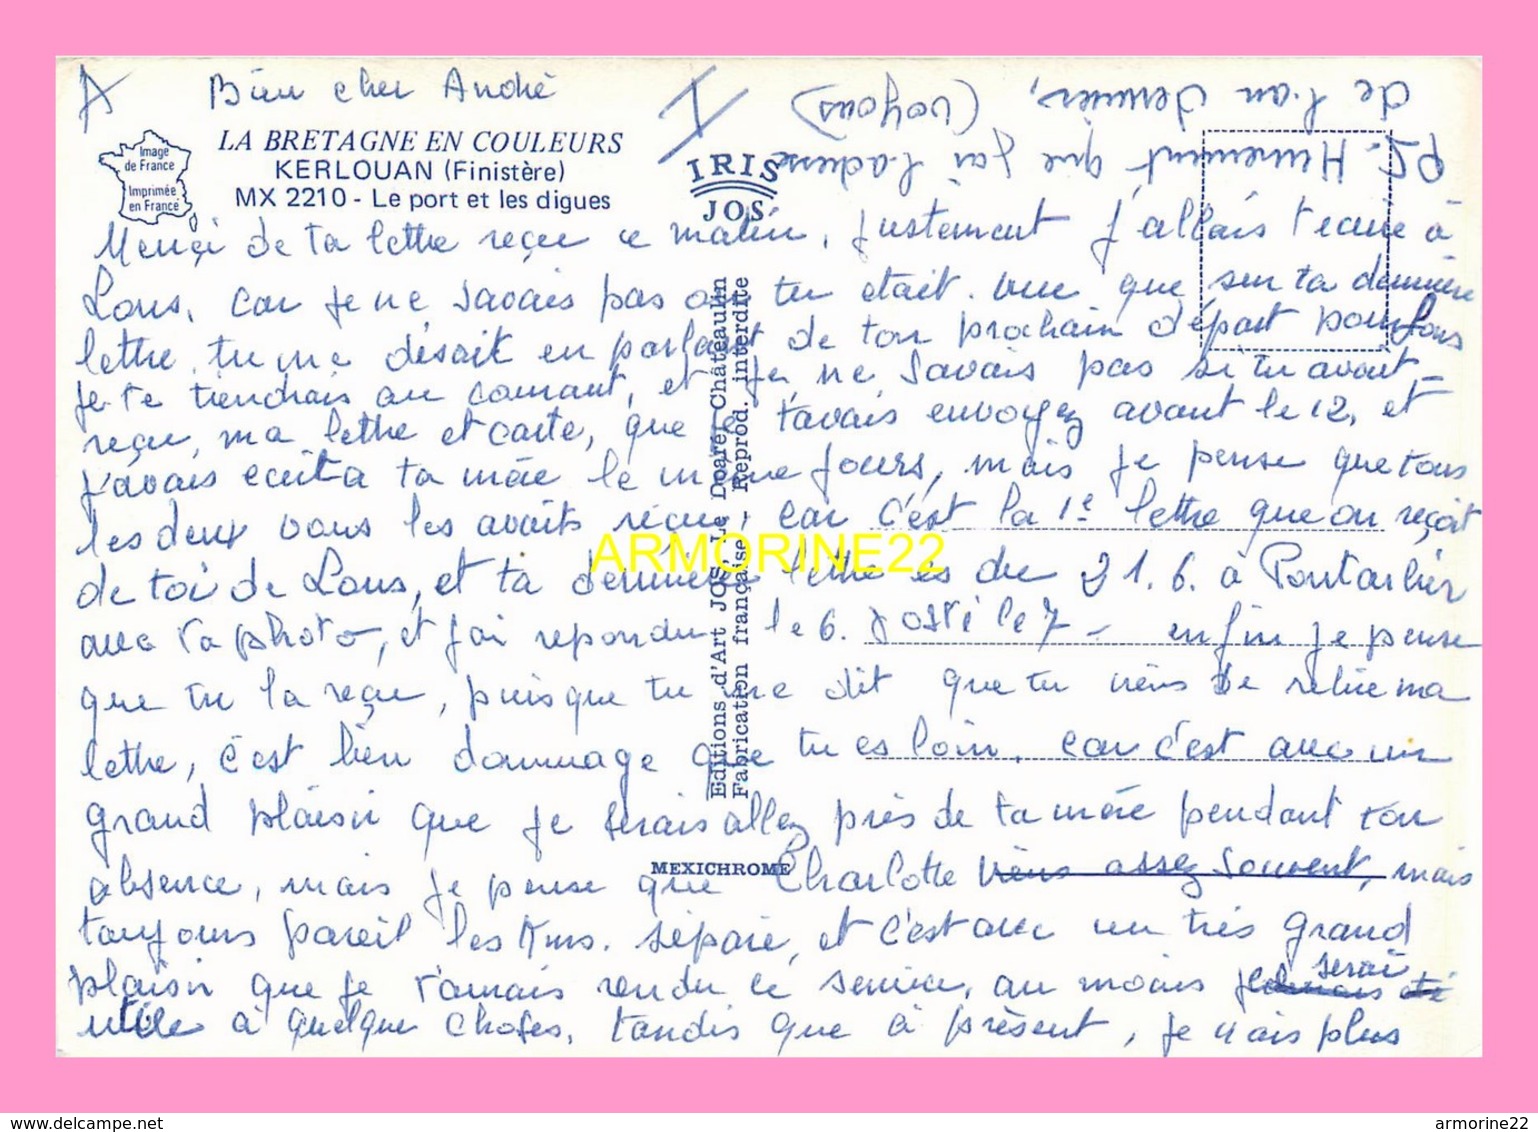 A Bien cher André
de l'an dernier, (voyous)
P.S. Heureusement que j'ai l'adresse
Image
de France
Imprimée
en France
LA BRETAGNE EN COULEURS
KERLOUAN (Finistère)
MX 2210 - Le port et les digues
IRIS
JOS
Merçi de ta lettre reçue ce matin, justement j'allais t'ecrire à
Lons, car je ne savais pas où tu etait. vue que sur ta dernière
lettre, tu me désait en parlant de ton prochain départ pour Lons
je te tiendrais au courant, et je ne savais pas si tu avait
reçu, ma lettre et carte, que je t'avais envoyez avant le 12, et
j'avais ecrit a ta mère le même jours, mais je pense que tous
les deux vous les avaits reçue, car c'est la 1e lettre que on reçoit
de toi de Lons, et ta dernière lettre es du 21.6. à Pontarlier
avec ta photo, et j'ai repondu le 6. posté le 7 - enfin je pense
que tu la reçue, puisque tu me dit que tu viens de relire ma
lettre, c'est bien dommage que tu es loin, car c'est avec un
grand plaisir que je serais allez près de ta mère pendant ton
absence, mais je pense que Charlotte viens assez souvent, mais
toujours pareil les Kms. sépare, et c'est avec un très grand
plaisir que je t'aurais rendu ce service, au moins je serai
utile à quelque choses, tandis que à présent, je n'ais plus
Editions d'Art JOS Le Doaré, Châteaulin
Fabrication française - Reprod. interdite
MEXICHROME
ARMORINE22
www.delcampe.net
armorine22